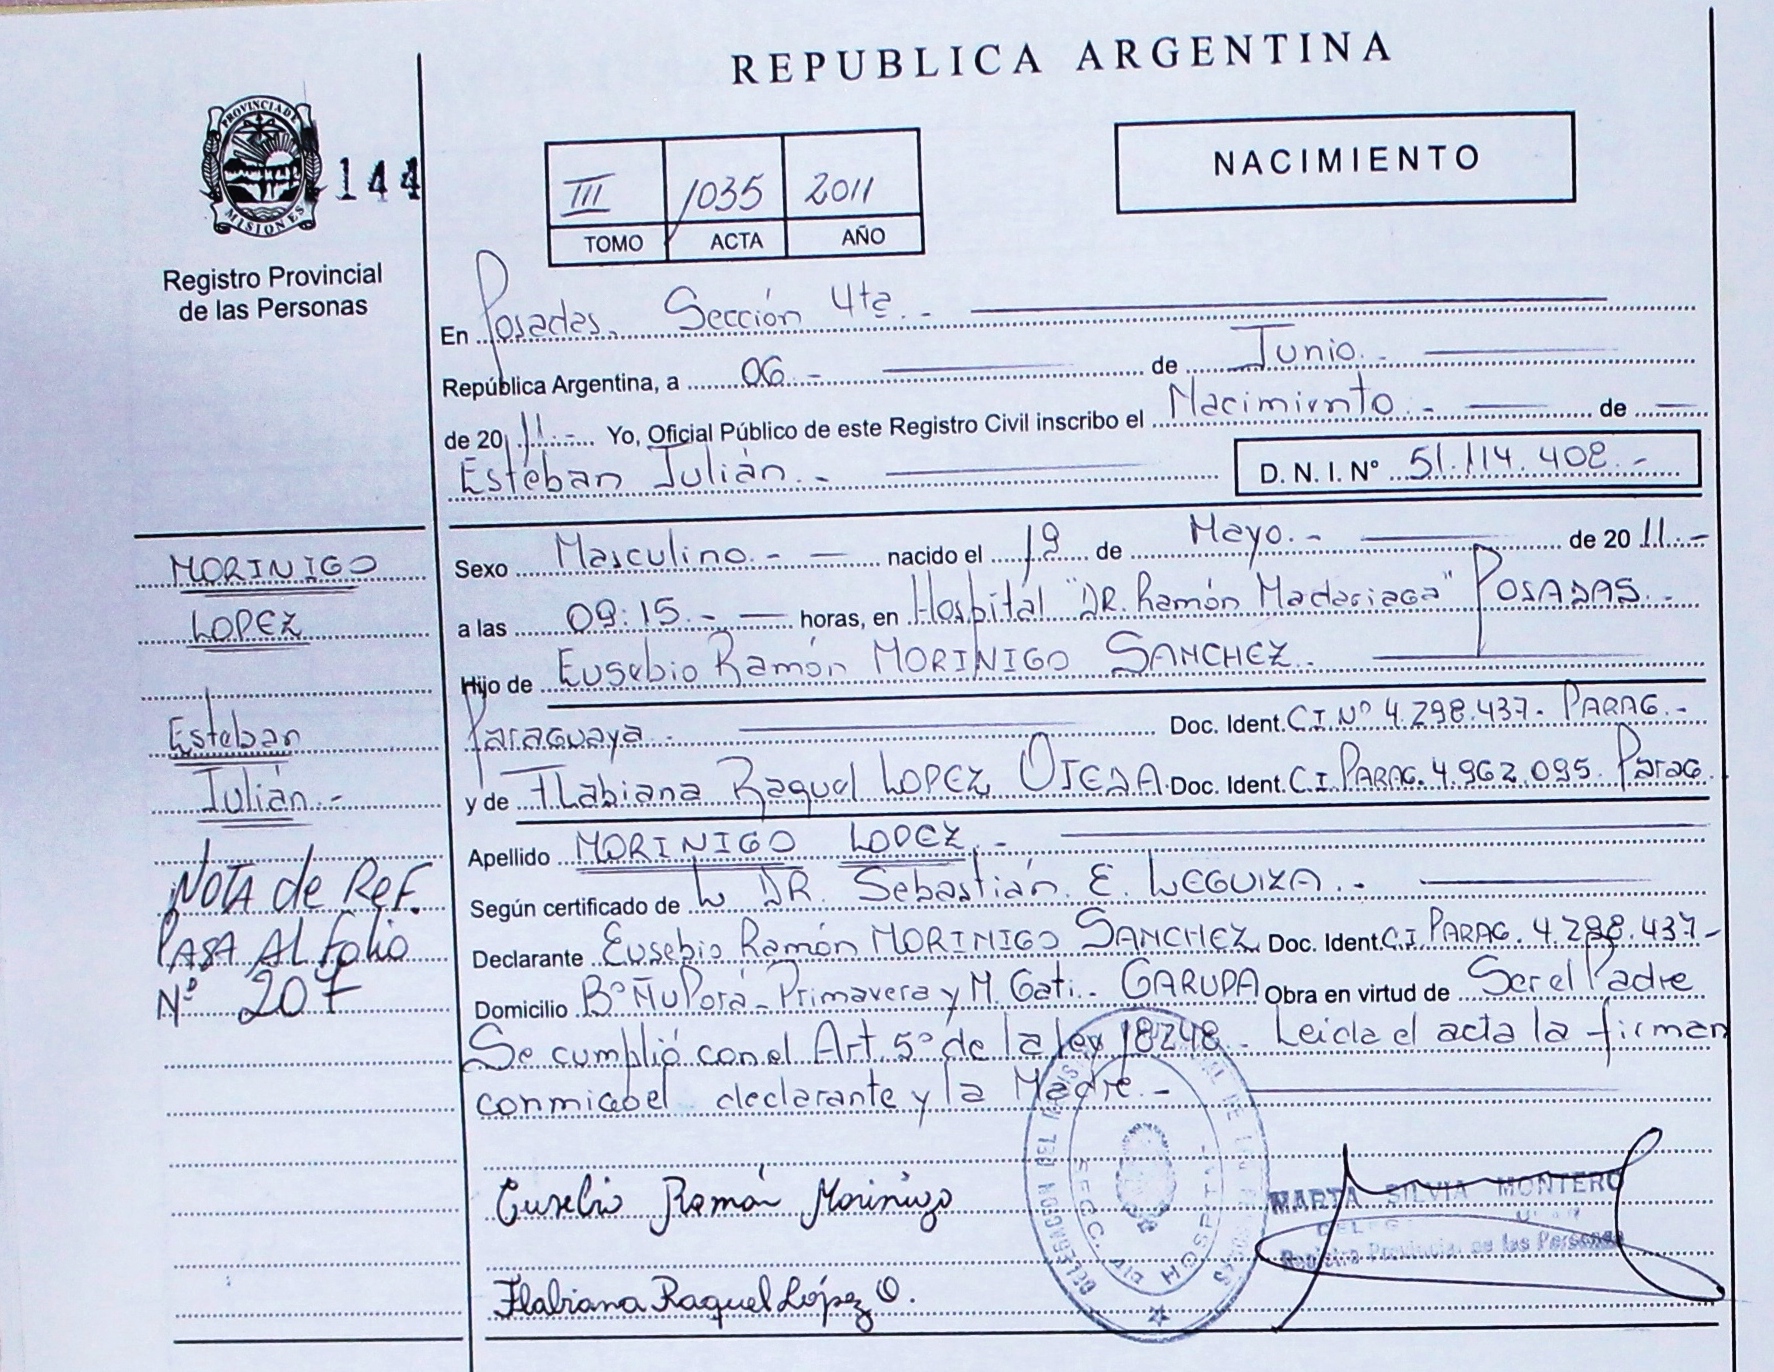 REPUBLICA ARGENTINA
PROVINCIA DE
MISIONES
144
Registro Provincial
de las Personas
III 1035 2011
TOMO ACTA AÑO
NACIMIENTO
En Posadas, Sección 4ta.-
República Argentina, a 06.- de Junio.-
de 2011.- Yo, Oficial Público de este Registro Civil inscribo el Nacimiento.- de
Estéban Julián.- D. N. I. N° 51.114.408.-
Sexo Masculino.- nacido el 19 de Mayo.- de 2011.-
a las 09:15.- horas, en Hospital "DR. Ramón Madariaga" POSADAS.-
Hijo de Eusebio Ramón MORINIGO SANCHEZ.
Paraguaya.- Doc. Ident. C.I.N° 4.298.437- PARAG.-
y de Flabiana Raquel LOPEZ OJEDA. Doc. Ident. C.I. PARAG. 4.962.095. Parag.
Apellido MORINIGO LOPEZ.-
Según certificado de DR. Sebastián E. LEGUIZA.-
Declarante Eusebio Ramón MORINIGO SANCHEZ Doc. Ident. C.I. PARAG. 4.298.437-
Domicilio B° ÑuPorá- Primavera y M. Gati.- GARUPA Obra en virtud de Ser el Padre
Se cumplió con el Art 5° de la ley 18248- Leida el acta la firman
conmigo el declarante y la Madre.-
MORINIGO
LOPEZ
Esteban
Julián.-
NOTA de REF.
PASA AL folio
N° 207
Eusebio Ramón Morinigo
Flabiana Raquel López O.
MARTA SILVIA MONTERO
Registro Provincial de las Personas